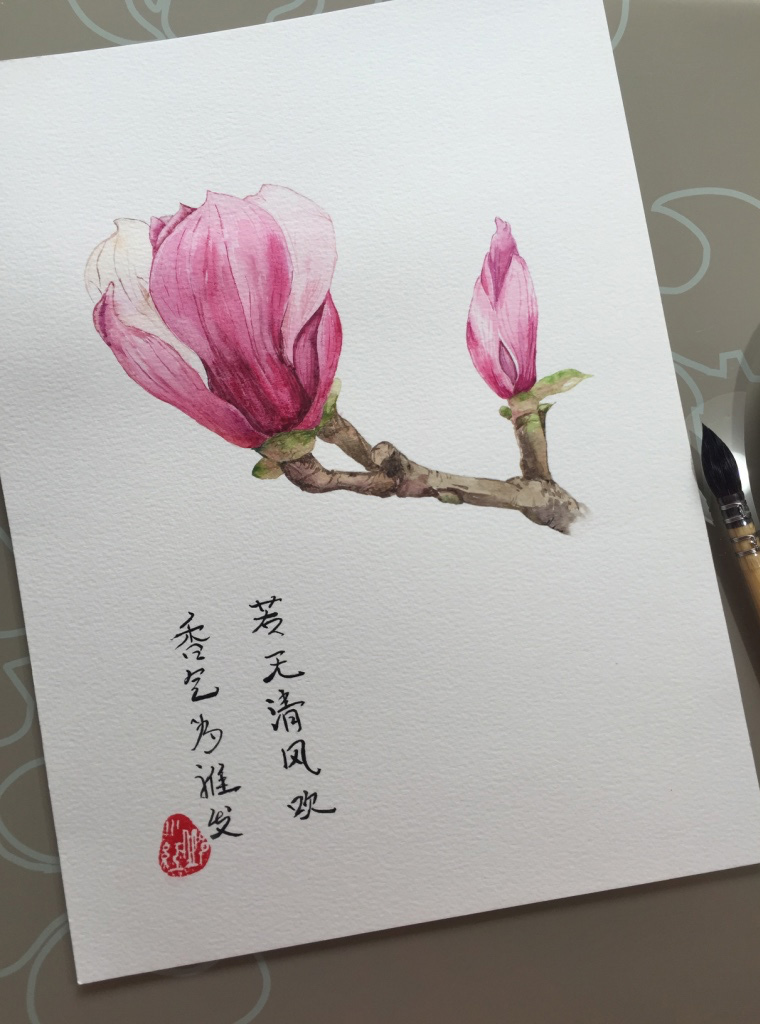 若无清风吹
香气为谁发